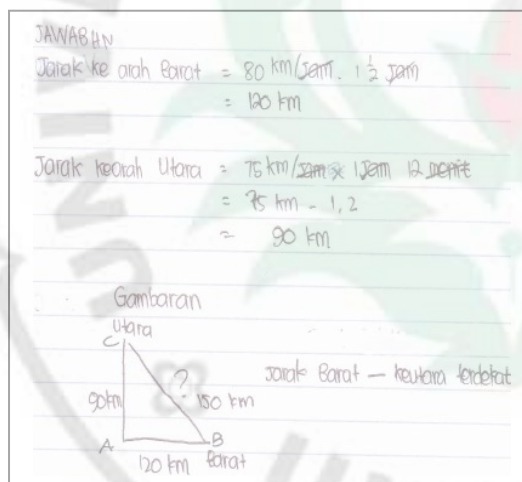 JAWABAN
Jarak ke arah Barat = 80 km/jam . 1 1/2 jam
= 120 km
Jarak kearah Utara = 75 km/jam x 1 jam 12 menit
= 75 km - 1,2
= 90 km
Gambaran
Utara
C
? Jarak Barat – keutara terdekat
90km 150 km
A B
120 km Barat